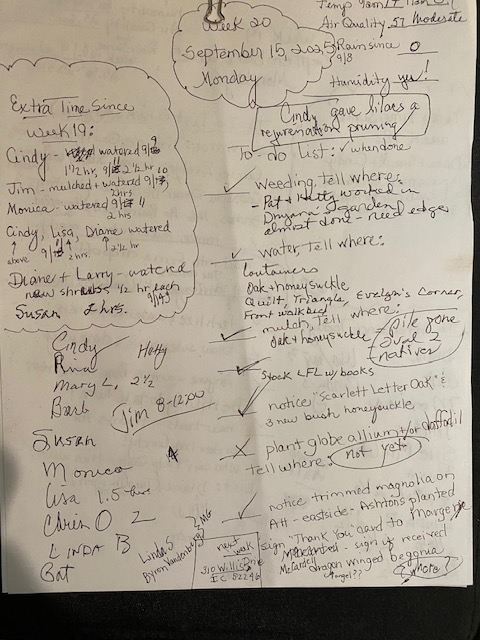 Week 20
September 15, 2025
Monday
Temp 9am
Air Quality 57 Moderate
Rain since 0
9/8
Humidity yu!
Cindy gave lilacs a
rejuvenation pruning
Extra Time Since
Week 19:
Cindy - watered 9/9
1 1/2 hr, 9/11 2 1/2 hr
Jim - mulched + watered 9/10
2hrs
Monica - watered 9/11
2 hrs
Cindy, Lisa, Diane watered
above 9/11 2 hrs. 2 1/2 hr
Diane + Larry - watered
new shrubs 1/2 hr each
9/14
Susan 2 hrs.
To-do List: ✓ when done
✓ weeding, tell where:
- Pat + Hetty worked in
garden
almost done - need edges
✓ water, tell where:
Containers
Oak + honeysuckle
Quilt, Triangle, Evelyn's Corner,
Front walk bed
✓ mulch, tell where:
Oak + honeysuckle
pile gone
oval 2
natives
✓ Stock LFL w/ books
✓ notice "Scarlett Letter Oak" &
3 new bush honeysuckle
X plant globe allium +/or daffodil
tell where: not yet
✓ notice trimmed magnolia on
Att - eastside - Ashtons planted
sign "Thank You" card to Margene
- sign up received
dragon winged begonia
angel??
more?
Cindy
Hetty
Mary L. 2 1/2
Barb
Jim 8-12:00
Susan
Monica
Lisa 1.5 hrs
Chris O 2
LINDA B
Pat
Linda S
Byron Vandenberg
MG
next
week
310 Willow
I.C. 52246